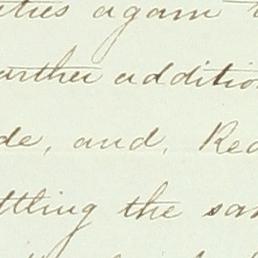 ties again
urther additio
de, and, Rec
ttling the sam